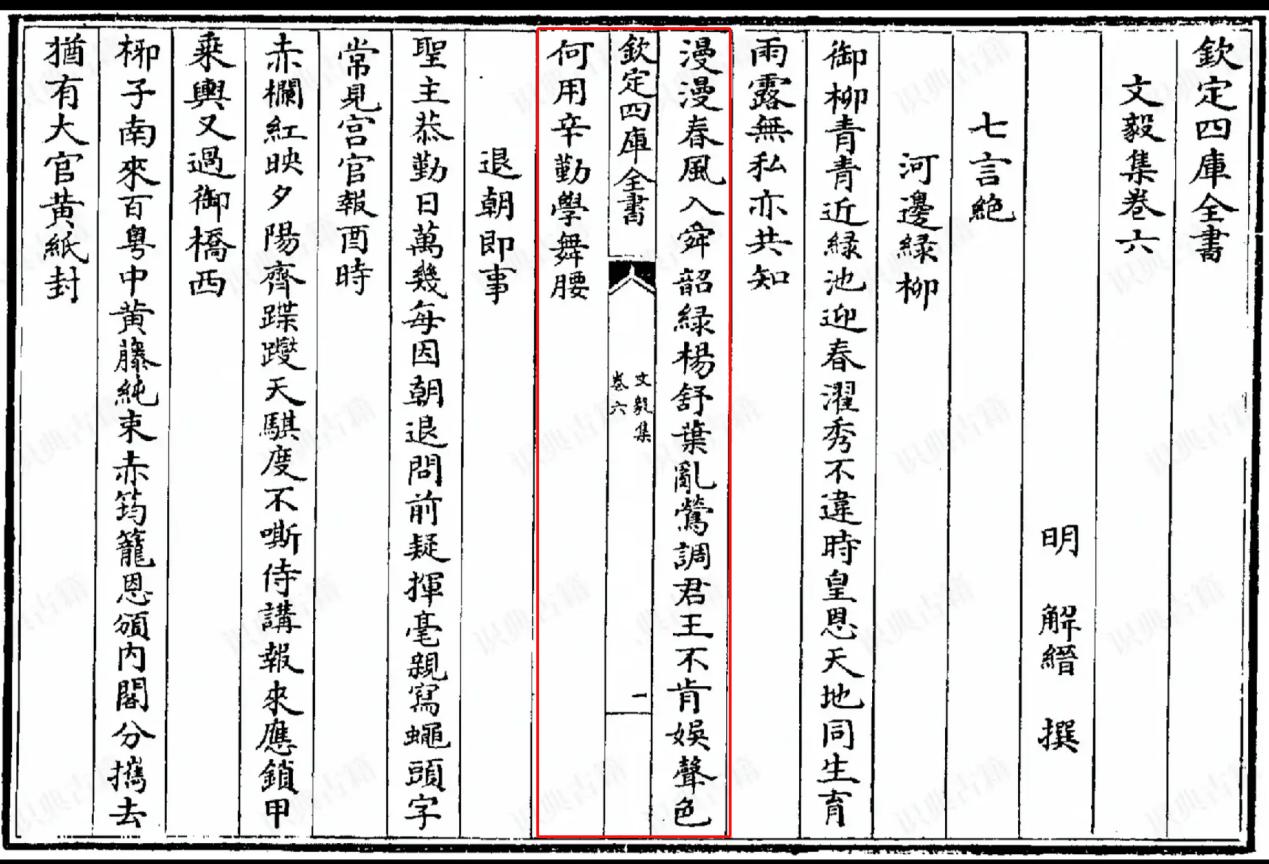 欽定四庫全書
文毅集卷六
明 解縉 撰
七言絶
河邊緑柳
御柳青青近緑池迎春濯秀不違時皇恩天地同生育
雨露無私亦共知
漫漫春風入舜韶緑楊舒葉亂鶯調君王不肯娱聲色
欽定四庫全書
文毅集
卷六
一
何用辛勤學舞腰
退朝即事
聖主恭勤日萬幾每因朝退問前疑揮毫親寫蠅頭字
常見宫官報酉時
赤欄紅映夕陽齊蹀躞天騏度不嘶侍講報來應鎖甲
乘輿又過御橋西
柳子南來百粤中黄藤純束赤筠籠恩頒内閣分攜去
猶有大官黄紙封